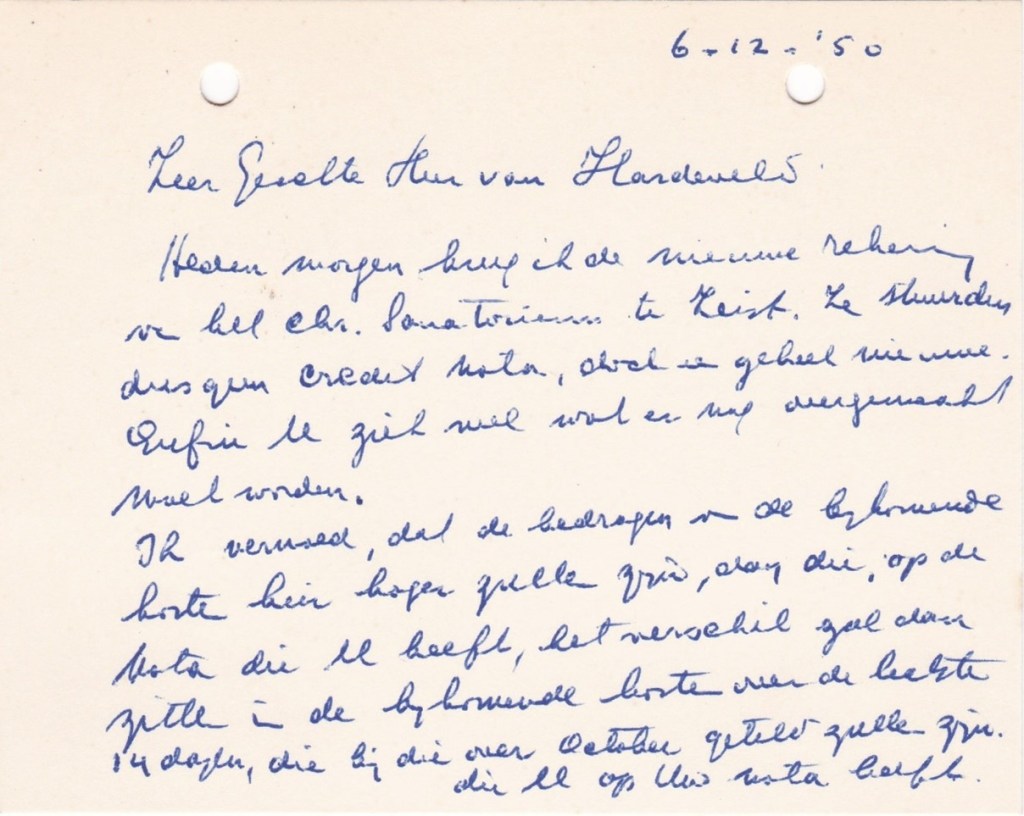 6-12-'50
Zeer Geachte Heer van Hardeveld.
Heden morgen kreeg ik de nieuwe rekening
van het Chr. Sanatorium te Zeist. Ze stuurden
dus geen credit nota, doch een geheel nieuwe.
Enfin U ziet wel wat er nog overgemaakt
moet worden.
Ik vermoed, dat de bedragen van de bijkomende
kosten hier hoger zullen zijn, dan die, op de
Nota die U heeft, het verschil zal dan
zitten in de bijkomende kosten over de laatste
14 dagen, die bij die over October geteld zullen zijn.
die U op Uw nota heeft.